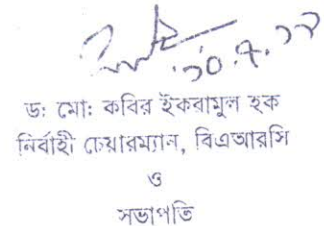 ড: মো: কবির ইকরামুল হক
নির্বাহী চেয়ারম্যান, বিএআরসি
ও
সভাপতি